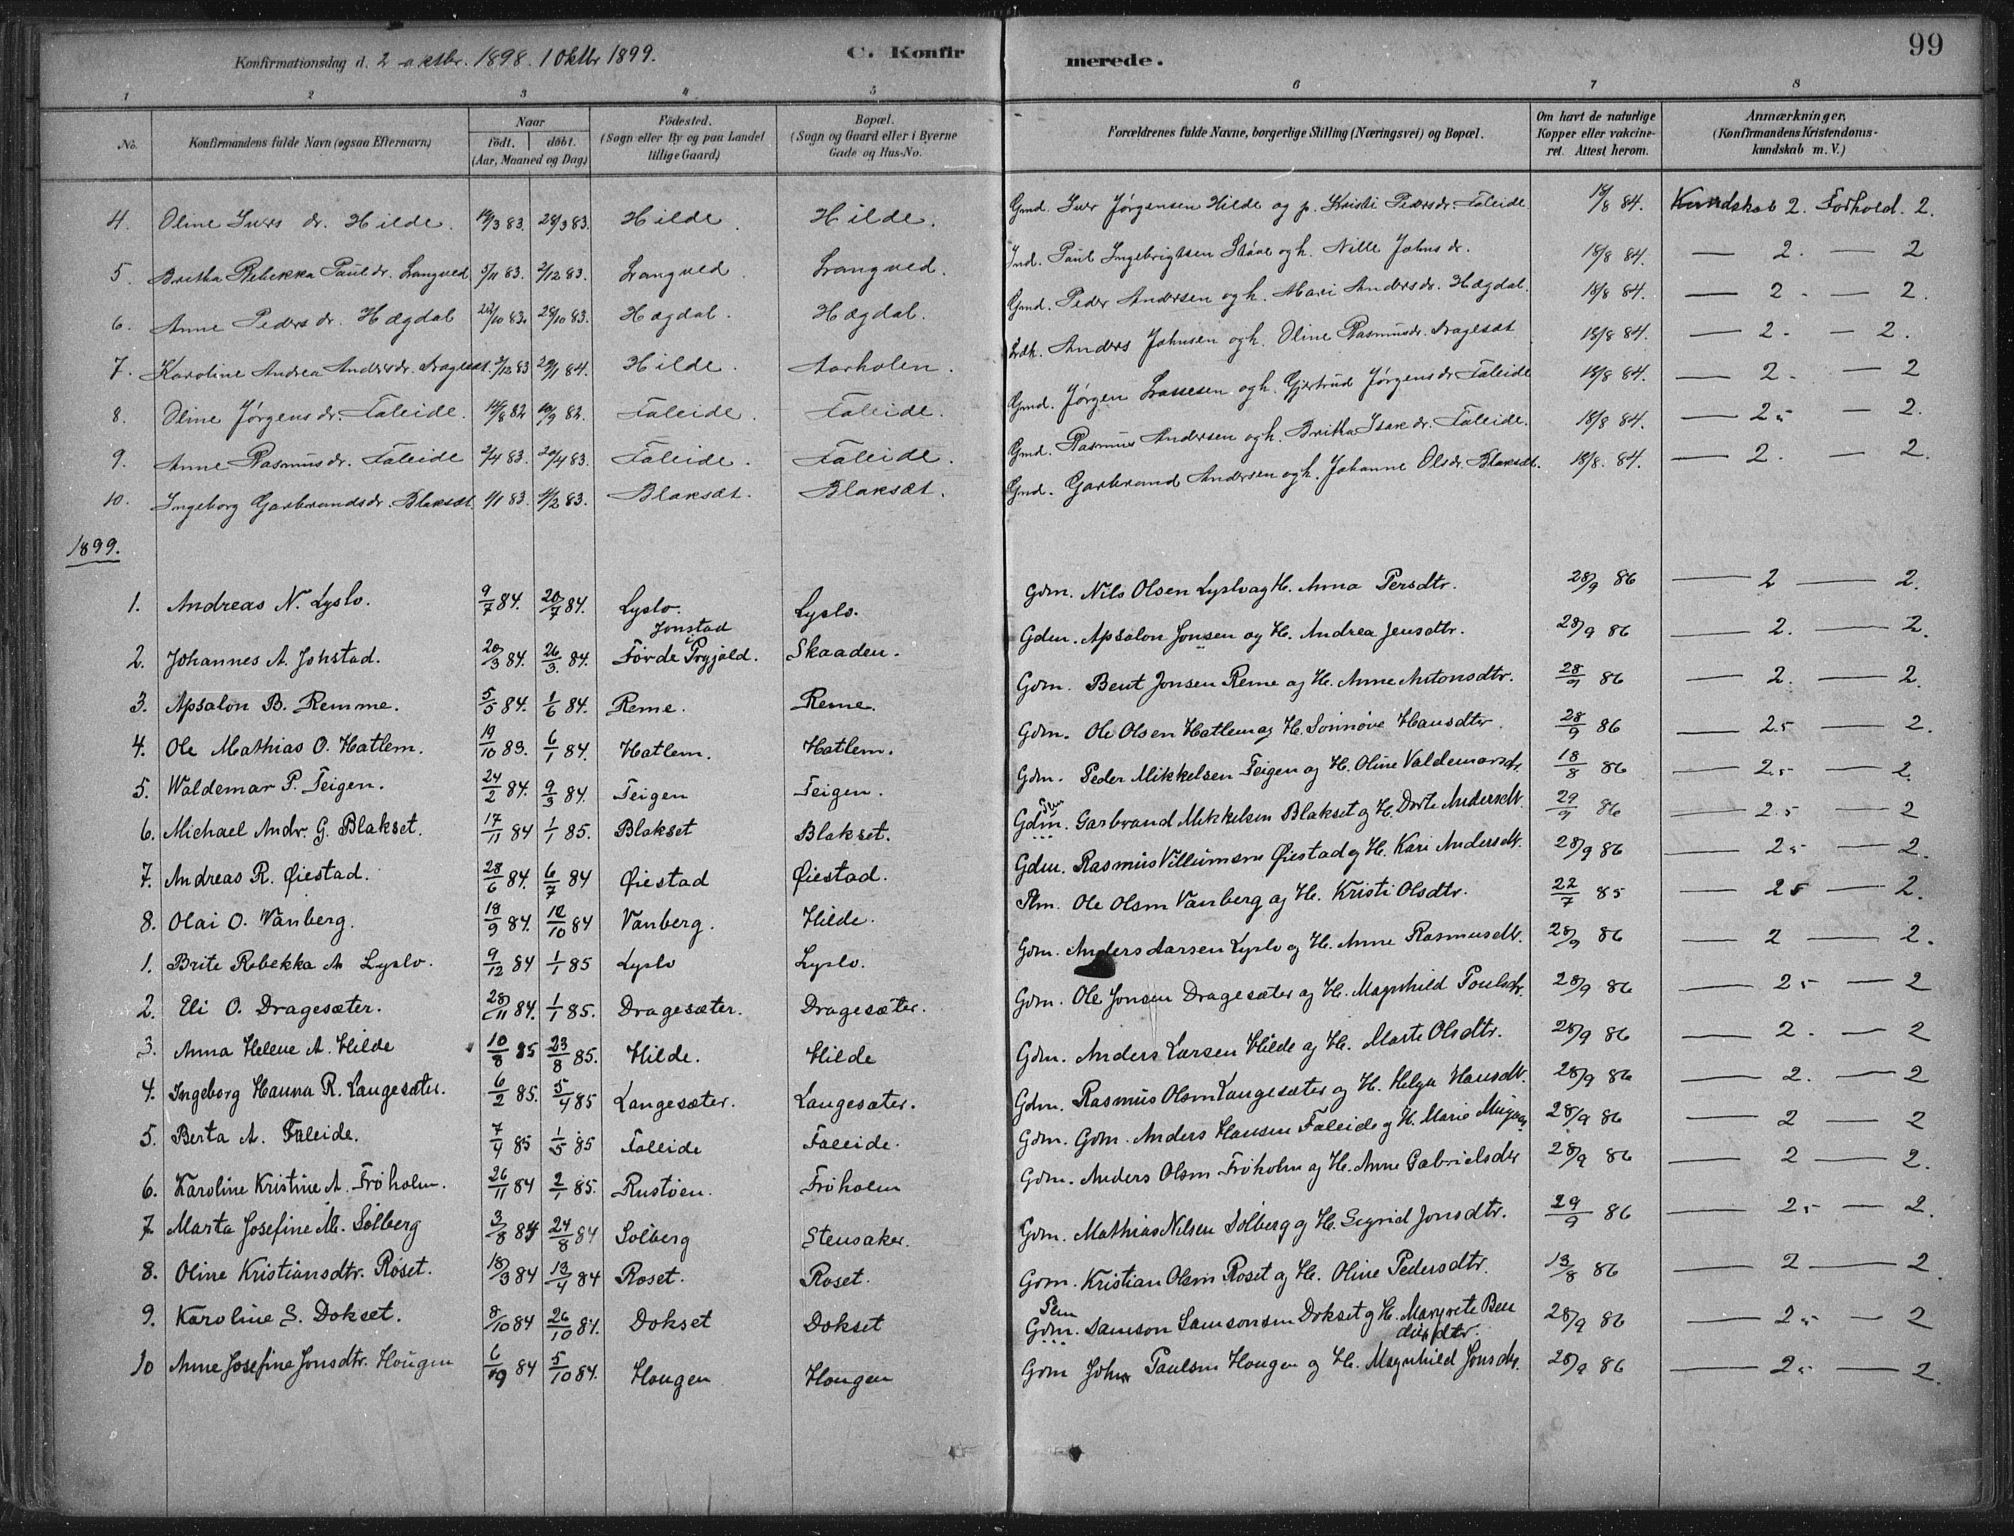 99
Konfirmationsdag d. 2 oktbr. 1898. 1 Oktbr 1899. C. Konfirmerede.
1 2 3 4 5 6 7 8
No. Konfirmandens fulde Navn (ogsaa Efternavn) Naar født. døbt. (Aar, Maaned og Dag) Födested. (Sogn eller By og paa Landet tillige Gaard) Bopæl. (Sogn og Gaard eller i Byerne Gade og Hus-No. Forældrenes fulde Navne, borgerlige Stilling (Næringsvei) og Bopæl. Om havt de naturlige Kopper eller vakcineret. Attest herom. Anmærkninger, (Konfirmandens Kristendomskundskab m. V.)
4. Oline Ivers dr. Hilde. 19/3 83. 28/3 83. Hilde. Hilde. Gmd. Iver Jørgensen Hilde og p. Kristi Pedersdr. Faleide 18/8 84. Kundskab 2. Forhold. 2.
5. Britha Rebekka Pauldr. Langved 5/11 83. 2/12 83. Langved. Langved. Ind. Paul Ingebrigtsen Støve og h. Nille Johns dr. 18/8 84. — 2. — 2
6. Anne Peders dr. Hægdal 22/10 83. 28/10 83. Hægdal. Hægdal. Gmd. Peder Andersen og h. Mari Andersdr. Hægdal. 18/8 84. — 2 - — 2.
7. Karoline Andrea Andersdr. Dragesæt. 3/12 83 20/1 84. Hilde. Aarholen. Anders Johnsen og h. Oline Rasmusdr. Dragesæt 18/8 84. — 2. — 2.
8. Oline Jørgensdr. Faleide. 14/8 82 10/9 82. Faleide. Faleide. Gmd. Jørgen Lassesen og h. Gjertrud Jørgensdr. Faleide 18/8 84. — 2. — 2
9. Anne Rasmusdr. Faleide 2/4 83. 20/4 83. Faleide. Faleide. Gmd. Rasmus Andersen og h. Britha Isak dr. Faleide. 18/8 84. — 2,5 — 2.
10. Ingeborg Garbrandsdr. Blaksæt. 1/1 83. 11/2 83. Blaksæt. Blaksæt. Gmd. Garbrand Andersen og h. Johanne Olsdr. Blaksæt. 18/8. 84. — 2. — 2.
1899.
1. Andreas N. Lyslo. 9/7 84. 20/7 84. Lyslo. Lyslo. Gdm. Nils Olsen Lyslo og H. Anna Persdtr. 28/9 86 — 2 — 2.
2. Johannes A. Johstad. 20/3 84. 26/3. 84. Jonstad i Førde Prgjæld. Skaaden. Gdm. Apsalon Jonsen og H. Andrea Jensdtr. 28/9 86 — 2. — 2.
3. Apsalon B. Remme. 5/5 84. 1/6 84. Reme. Reme. Gdm. Bent Jonsen Reme og H. Anne Antonsdtr. 28/9 86 — 2. — 2.
4. Ole Mathias O. Hatlem. 19/10 83. 6/1 84. Hatlem. Hatlem. Gdm. Ole Olsen Hatlem og H. Sønnøve Hansdtr 28/9 86 — 2.5 — 2.
5. Waldemar P. Teigen. 24/2 84. 9/3 84. Teigen Teigen. Gdm. Peder Mikkelsen Teigen og H. Oline Valdemarsdr. 18/8 86 — 2.5 — 2.
6. Michael Andr. G. Blakset. 17/11 84 1/1 85. Blakset Blakset. Gdm. Garbrand Mikkelsen Blakset og H. Dorte Andersdtr. 29/9 86 — 2.5 — 2
7. Andreas R. Øiestad. 28/6 84. 6/7 84 Øiestad Øiestad. Gdm. Rasmus Villumsen Øiestad og H. Kari Andersdtr. 28/9 86 — 2,5 — 2.
8. Olai O. Vanberg. 18/9 84. 12/10 84 Vanberg. Hilde. Plm. Ole Olsen Vanberg og H. Kristi Olsdtr. 22/7 85 — 2.5 — 2.
1. Brite Rebekka A Lyslo. 9/12 84 1/1 85 Lyslo Lyslo. Gdm. Anders Larsen Lyslo og H. Anne Rasmusdtr. 28/9 86 — 2 — 2.
2. Eli O. Dragesæter. 28/11 84. 1/1 85. Dragesæter. Dragesæter. Gdm. Ole Jonsen Dragesæter og H. Magnhild Poulsdtr. 28/9 86 — 2,5 — 2
3. Anna Helene A. Hilde 10/8 85 23/8 85. Hilde. Hilde Gdm. Anders Larsen Hilde og H. Marte Olsdtr. 28/9 86 — 2. — 2
4. Ingeborg Hanna R. Langesæter. 6/2 85. 5/4 85 Langesæter. Langesæter. Gdm. Rasmus Olsen Langesæter og H. Helga Hansdtr. 28/9 86 — 2. — 2
5. Berta A. Faleide. 7/4 85 1/5 85 Faleide Faleide. Gdm. Gdm. Anders Hansen Faleide og H. Marie 28/9 86 — 2 — 2
6. Karoline Kristine A. Frøholm. 26/11 84 2/1 85. Rustøen. Frøholm Gdm. Anders Olsen Frøholm og H. Anne Gabrielsdtr 28/9 86 — 2 — 2.
7. Marta Josefine M. Solberg 3/8 84 24/8 84 Solberg Stensaker. Gdm. Mathias Nilsen Solberg og H. Sigrid Jonsdtr. 29/9 86 — 2,5 — 2.
8. Oline Kristiansdtr. Roset. 18/3 84 13/4 84 Roset. Roset. Gdm. Kristian Olsen Roset og H. Oline Pedersdtr. 13/8 86 — 2 — 2.
9. Karoline S. Dokset. 8/10 84 26/10 84. Dokset Dokset Gdm. Samson Samsonsen Dokset og H. Margrete Bendiksdtr. 28/9 86 — 2,5 — 2
10 Anne Josefine Jonsdtr. Hougen 6/9 84 5/10 84. Hougen Hougen Gdm John Paulsen Hougen og H. Magnhild Jonsdtr. 28/9 86 — 2,5 — 2.